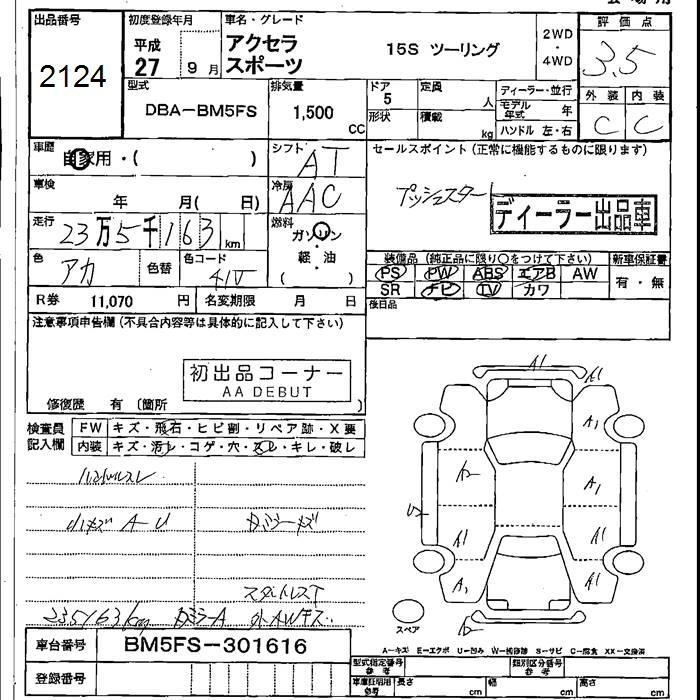 出品番号
2124
初度登録年月
平成
27 9 月
車名・グレード
アクセラ
スポーツ
15S ツーリング
2WD
・
4WD
評価点
3.5
外装 内装
C C
型式
DBA-BM5FS
排気量
1,500
CC
ドア
5
形状
定員
人
積載
kg
ディーラー・並行
モデル年式 年
ハンドル 左・右
車歴
自家用・( )
シフト
AT
車検
年 月( 日)
冷房
AAC
セールスポイント(正常に機能するものに限ります)
プッシュスター
ディーラー出品車
走行
23万5千163 km
燃料
ガソリン
・
軽・油
( )
色
アカ
色替
色コード
41V
装備品(純正品に限り○をつけて下さい)
PS PW ABS エアB AW
SR ナビ TV カワ
新車保証書
有・無
R券 11,070 円
名変期限 月 日
後日品
注意事項申告欄(不具合内容等は具体的に記入して下さい)
初出品コーナー
AA DEBUT
修復歴 有 〔箇所 〕
検査員
記入欄
FW キズ・飛石・ヒビ割・リペア跡・X要
内装 キズ・汚レ・コゲ・穴・スレ・キレ・破レ
ハンドルスレ
小キズ A-U
235163km
A1
A1
A1
A2
A1
U2
A1
A1
A1
A1
スペア
A-キズ E-エクボ U-凹み W-補修跡 S-サビ C-腐食 XX-交換済
車台番号 BM5FS-301616
登録番号
型式指定番号
参考
類別区分番号
参考
車庫証明用
参考
長さ cm
幅 cm
高さ cm